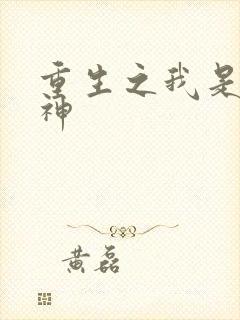 重生之我是
神
黄磊